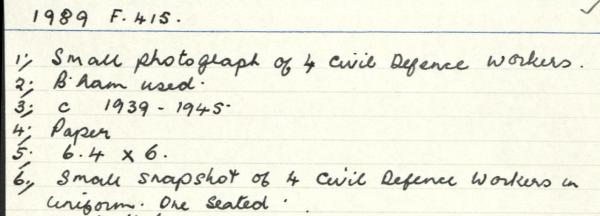 1989 F. 415.
1; Small photograph of 4 Civil Defence Workers.
2; B'ham used.
3; c 1939 - 1945.
4; Paper
5. 6.4 x 6.
6; Small snapshot of 4 Civil Defence Workers in
uniform. One seated.